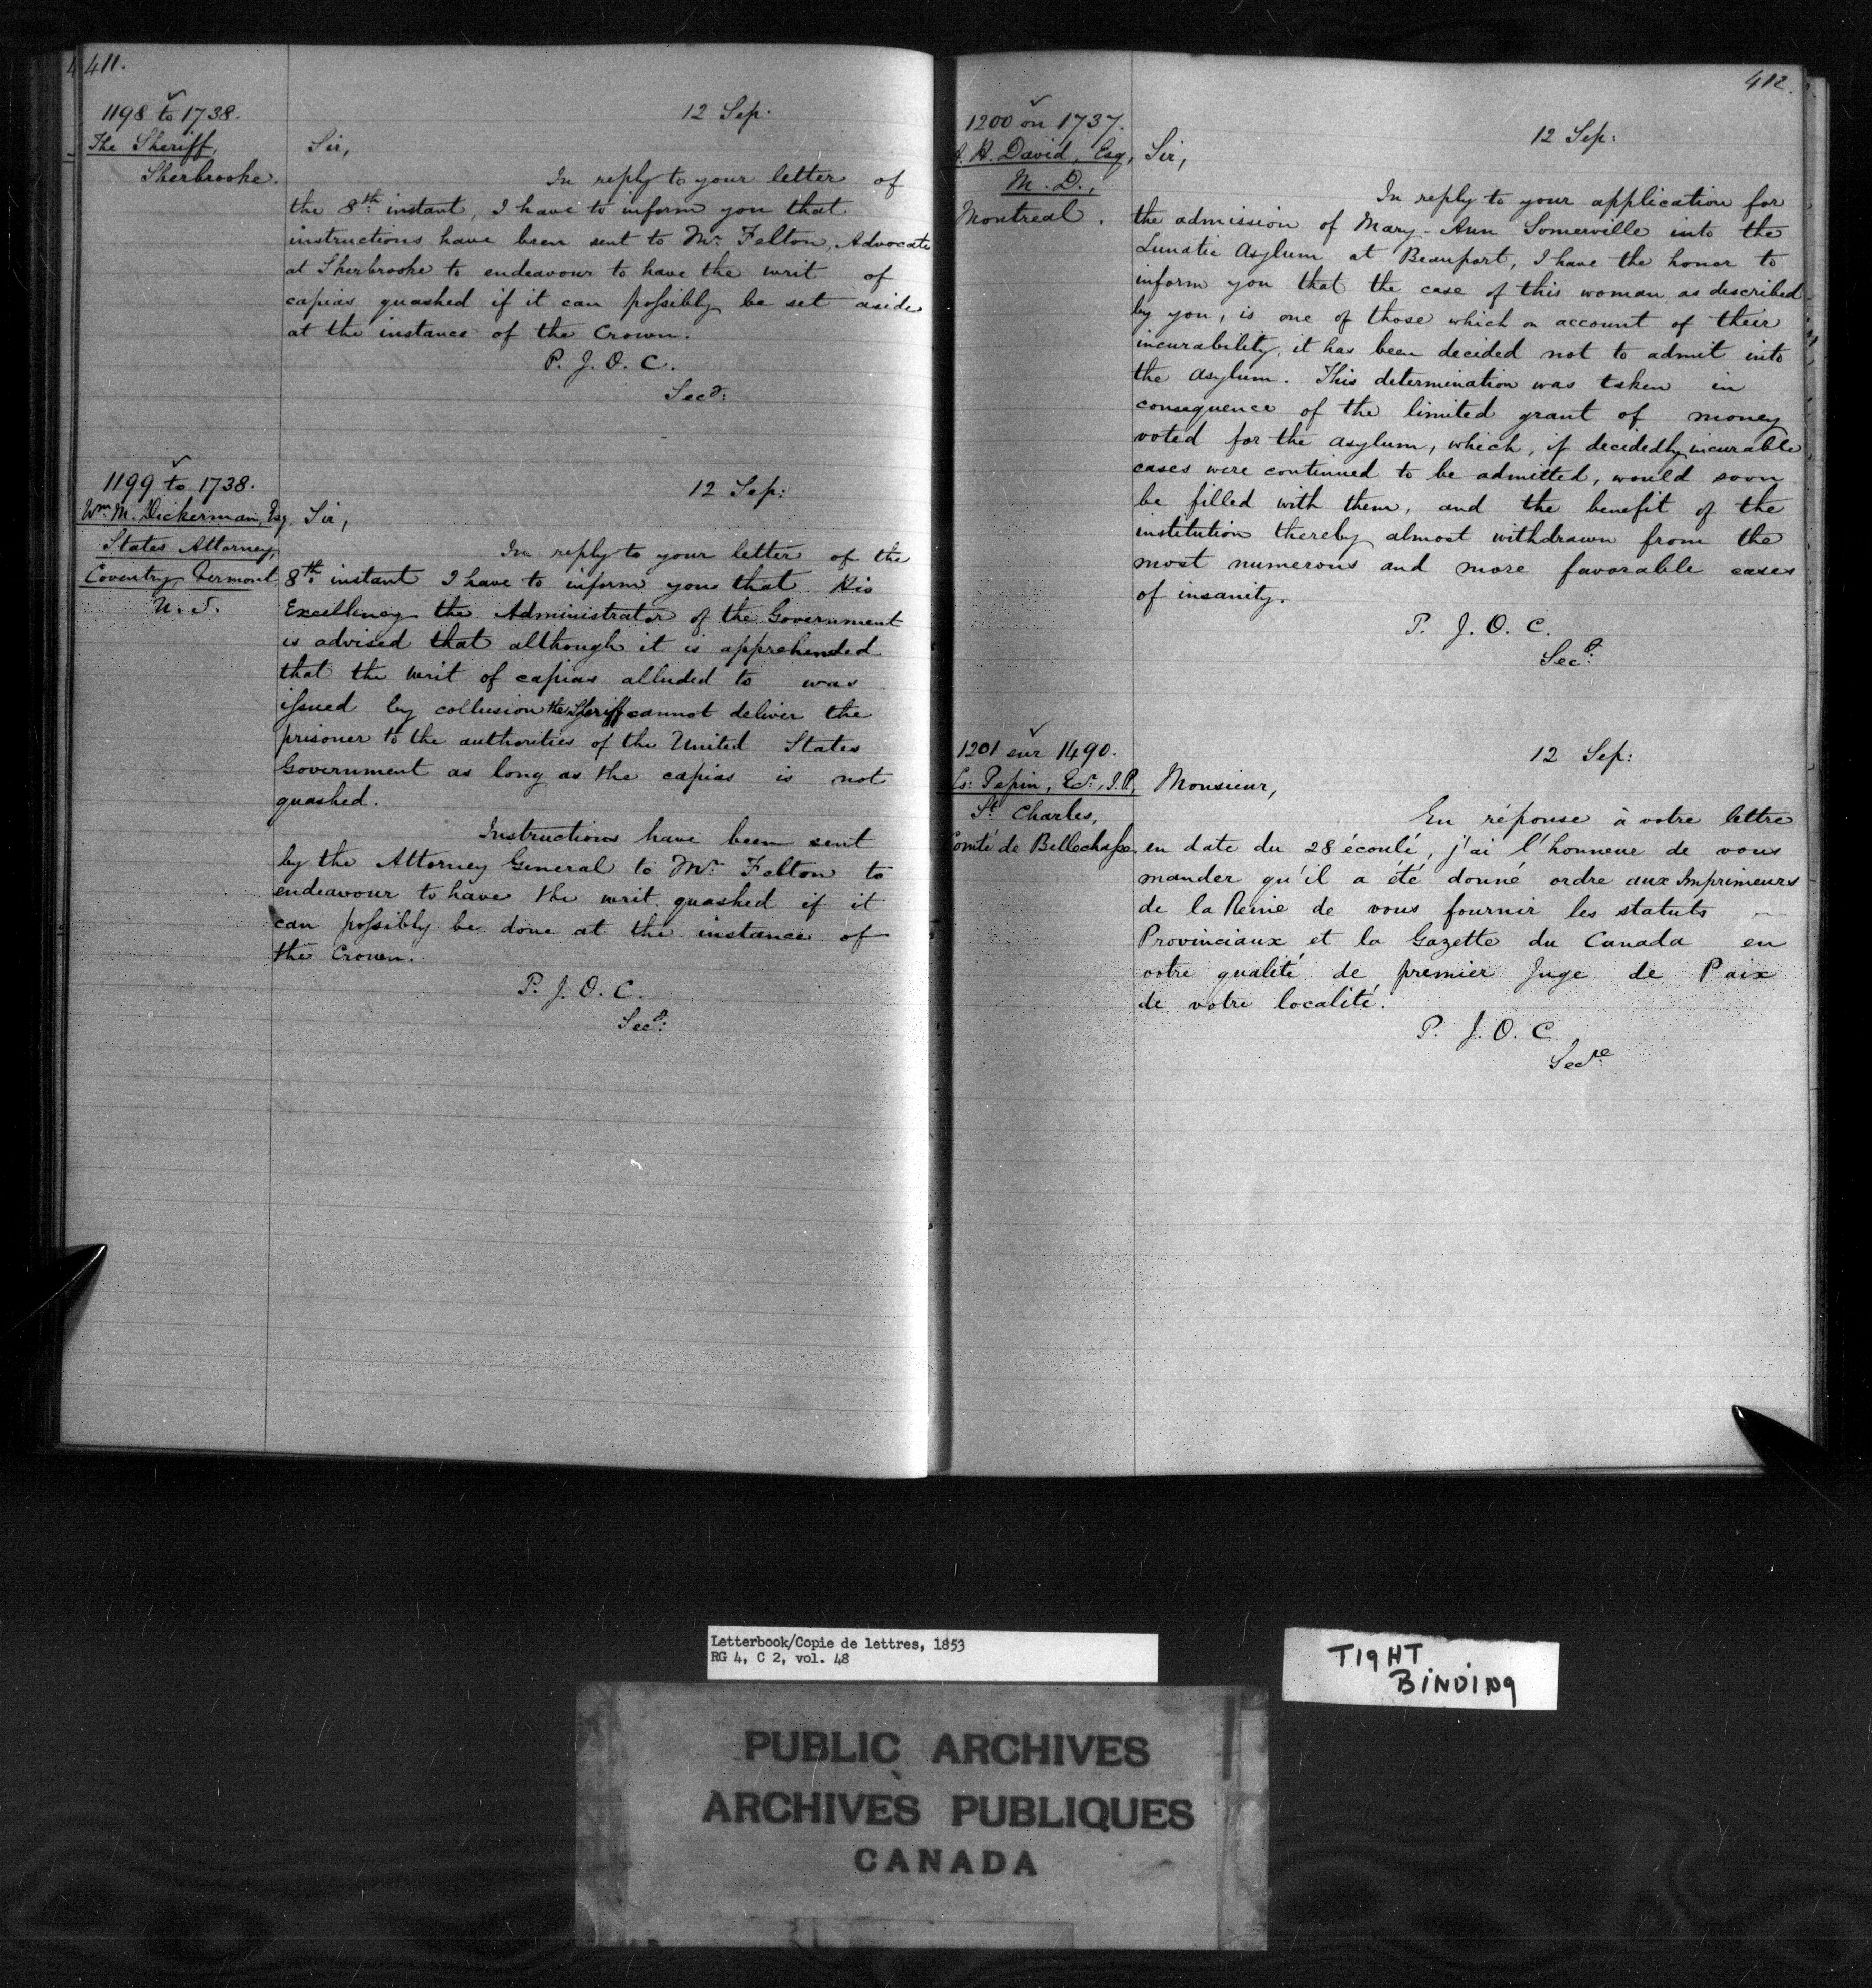 411.
1198 to 1738.
The Sheriff,
Sherbrooke.
12 Sep:
Sir,
In reply to your letter of
the 8th instant, I have to inform you that
instructions have been sent to Mr. Felton, Advocate
at Sherbrooke to endeavour to have the writ of
capias quashed if it can possibly be set aside
at the instance of the Crown.
P. J. O. C.
Secy:
1199 to 1738.
Wm. M. Dickerman, Esq.
States Attorney,
Coventry Vermont
U. S.
12 Sep:
Sir,
In reply to your letter of the
8th instant I have to inform you that His
Excellency the Administrator of the Government
is advised that although it is apprehended
that the writ of capias alluded to was
issued by collusion the Sheriff cannot deliver the
prisoner to the authorities of the United States
Government as long as the capias is not
quashed.
Instructions have been sent
by the Attorney General to Mr. Felton to
endeavour to have the writ quashed if it
can possibly be done at the instance of
the Crown.
P. J. O. C.
Secy:
412.
1200 on 1737.
A. H. David, Esq,
M. D.,
Montreal.
12 Sep:
Sir,
In reply to your application for
the admission of Mary-Ann Somerville into the
Lunatic Asylum at Beauport, I have the honor to
inform you that the case of this woman as described
by you, is one of those which on account of their
incurability, it has been decided not to admit into
the asylum. This determination was taken in
consequence of the limited grant of money
voted for the asylum, which, if decidedly incurable
cases were continued to be admitted, would soon
be filled with them, and the benefit of the
institution thereby almost withdrawn from the
most numerous and more favorable cases
of insanity.
P. J. O. C.
Secy:
1201 sur 1490.
Ls: Pepin, Ecr., J.P,
St Charles,
Comté de Bellechasse.
12 Sep:
Monsieur,
En réponse à votre lettre
en date du 28 écoulé, j'ai l'honneur de vous
mander qu'il a été donné ordre aux Imprimeurs
de la Reine de vous fournir les statuts
Provinciaux et la Gazette du Canada en
votre qualité de premier Juge de Paix
de votre localité.
P. J. O. C.
Secre
Letterbook/Copie de lettres, 1853
RG 4, C 2, vol. 48
TIGHT
BINDING
PUBLIC ARCHIVES
ARCHIVES PUBLIQUES
CANADA